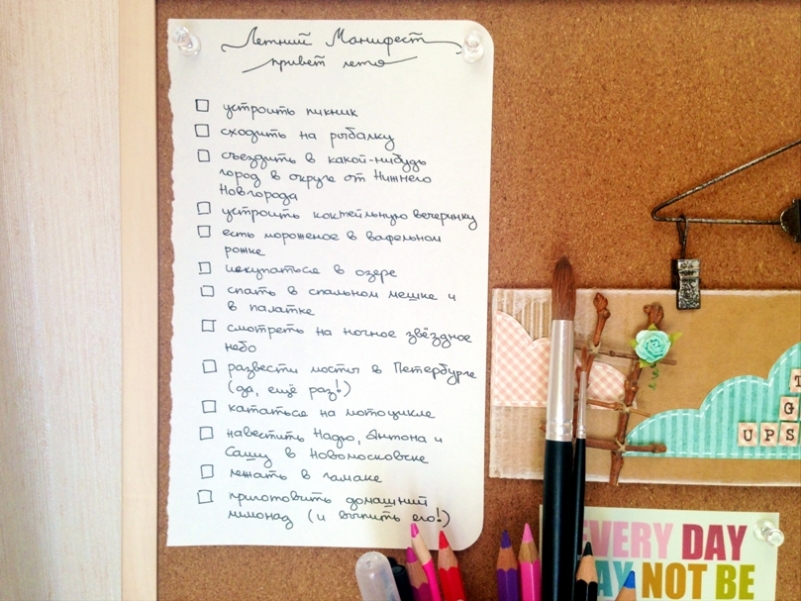 Летний Манифест
привет лето
устроить пикник
сходить на рыбалку
съездить в какой-нибудь
город в округе от Нижнего
Новгорода
устроить коктейльную вечеринку
есть мороженое в вафельном
рожке
искупаться в озере
спать в спальном мешке и
в палатке
смотреть на ночное звёздное
небо
развести мосты в Петербурге
(да, ещё раз!)
кататься на мотоцикле
навестить Надю, Антона и
Сашу в Новомосковске
лежать в гамаке
приготовить домашний
лимонад (и выпить его!)
T
G
UPS
EVERY DAY
AY NOT BE